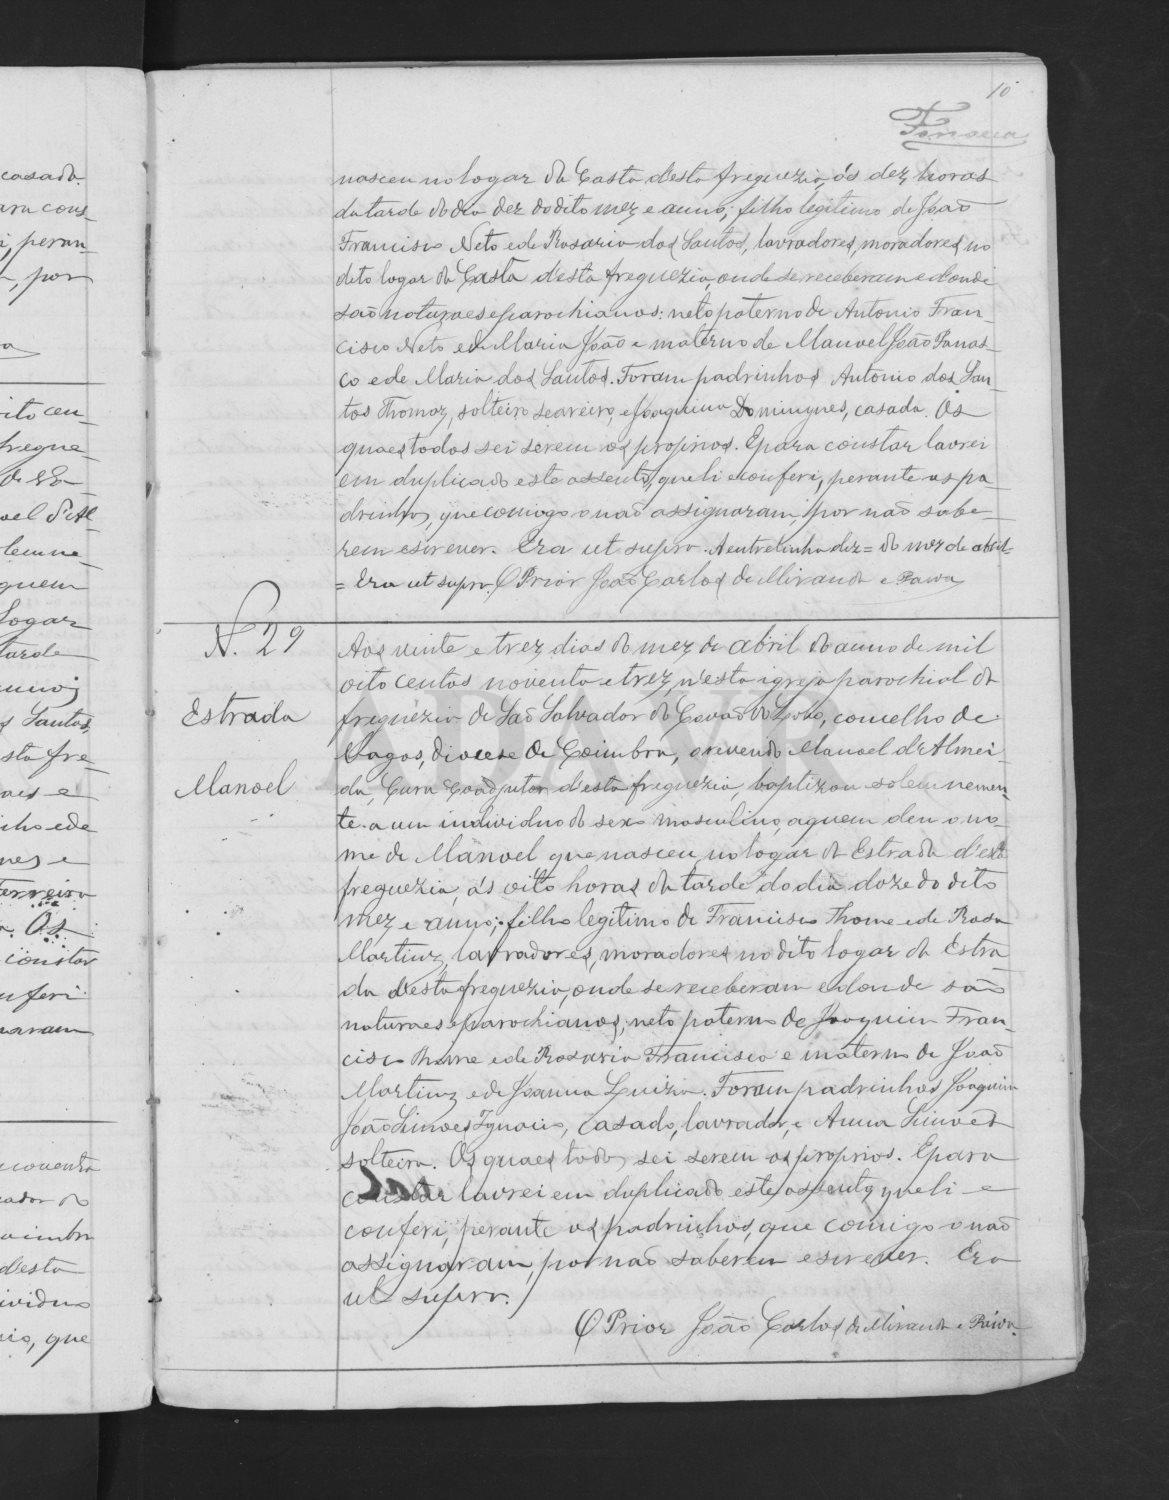 10
Fonseca
nasceu no logar da Gasta d'esta freguezia, ás dez horas
da tarde do dia dez do dito mez e anno; filho legitimo de João
Francisco Neto e de Rosaria dos Santos, lavradores, moradores no
dito logar da Gasta d'esta freguezia, onde se receberam e donde
são naturaes e parochianos: neto paterno de Antonio Fran-
cisco Neto e de Maria João e materno de Manoel João Panas-
co e de Maria dos Santos. Foram padrinhos Antonio dos San-
tos Thomaz, solteiro seareiro, e Joaquina Domingues, casada. Os
quaes todos sei serem os proprios. E para constar lavrei
em duplicado este assento, que li e conferi, perante os pa-
drinhos, que comigo o não assignaram, por não sabe-
rem escrever. Era ut supra. A entrelinha diz = do mez de abril =
= Era ut supra. O Prior João Carlos de Miranda e Paiva
N. 29
Estrada
Manoel
Aos vinte e trez dias do mez de abril do anno de mil
oito centos noventa e trez, n'esta igreja parochial da
freguezia de São Salvador do Covão do Lobo, concelho de
Vagos, diocese de Coimbra, o revendo Manoel d'Almei-
da, Cura Coadjutor d'esta freguezia, baptizou solemnemen-
te a um individuo do sexo masculino, a quem deu o no-
me de Manoel que nasceu no logar da Estrada d'esta
freguezia, ás oito horas da tarde do dia doze do dito
mez e anno; filho legitimo de Francisco Thome e de Rosa
Martins, lavradores, moradores no dito logar da Estra
da d'esta freguezia, onde se receberam e donde são
naturaes e parochianos; neto paterno de Joaquim Fran-
cisco Thome e de Rosaria Francisca e materno de João
Martins e de Joanna Luiza. Foram padrinhos Joaquim
João Simões Ignacio, casado, lavrador, e Anna Simões
solteira. Os quaes todos sei serem os proprios. E para
constar lavrei em duplicado este assento, que li e
conferi, perante os padrinhos, que comigo o não
assignaram, por não saberem escrever. Era
ut supra.
O Prior João Carlos de Miranda e Paiva.
ADAVR